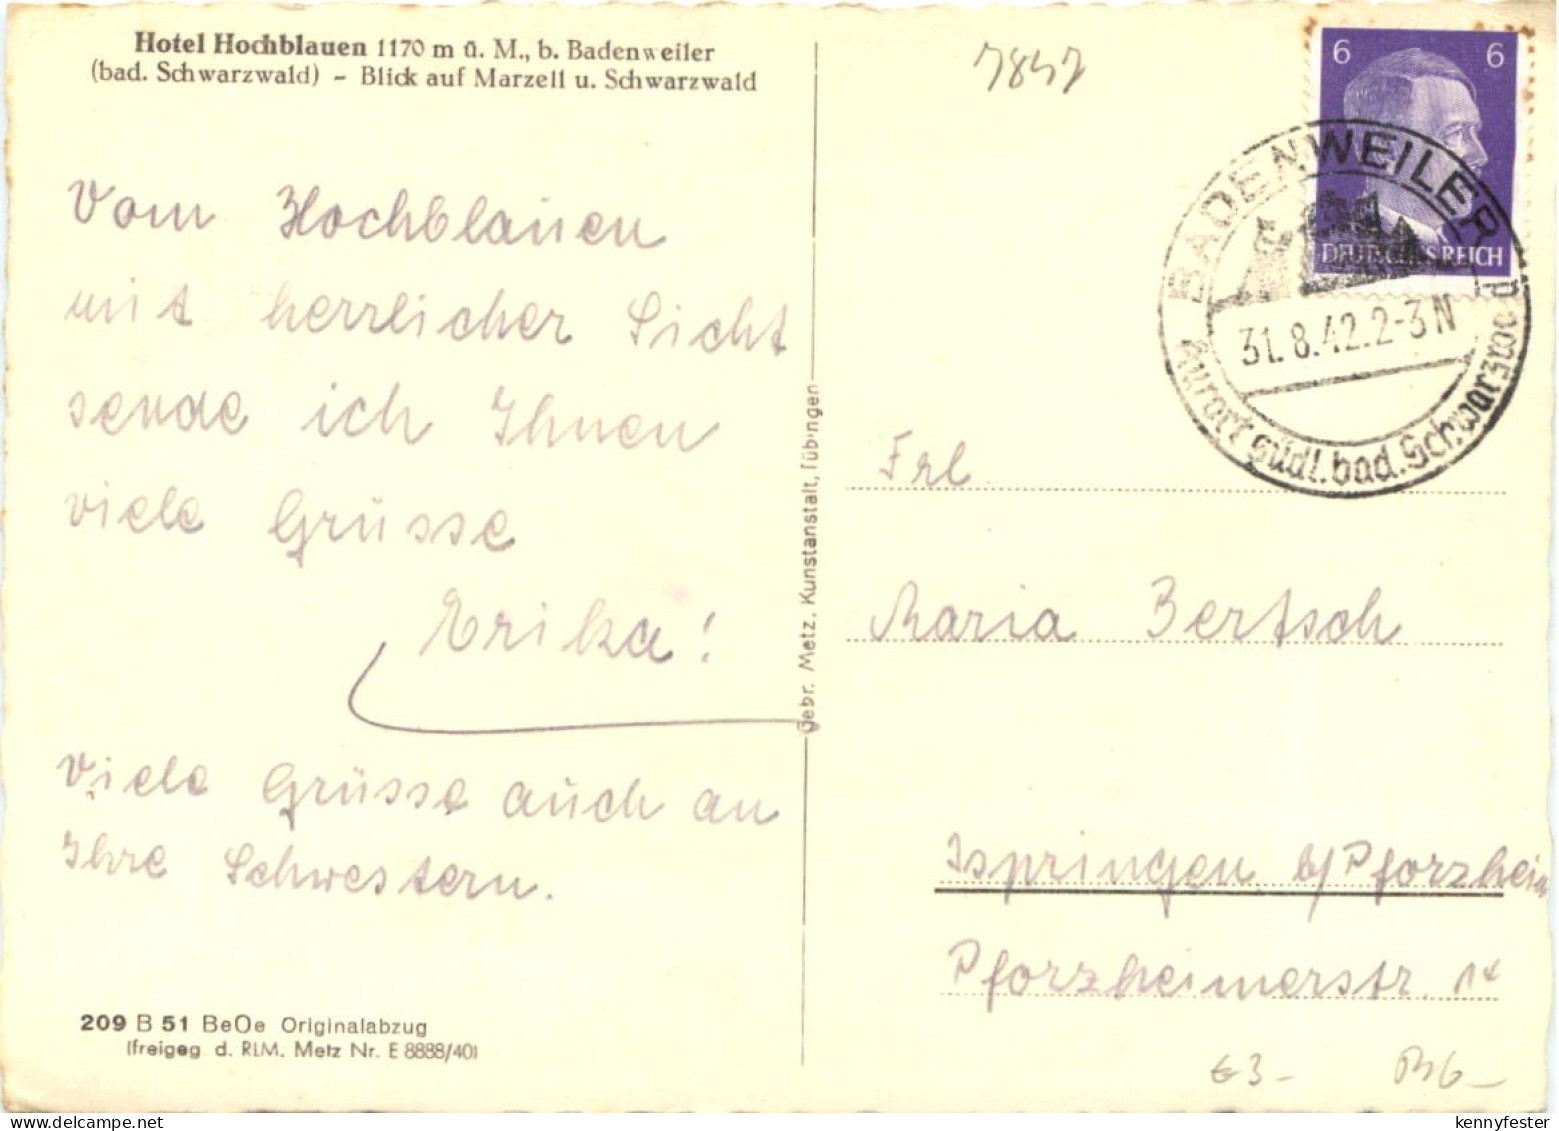 Hotel Hochblauen 1170 m ü. M., b. Badenweiler
(bad. Schwarzwald) – Blick auf Marzell u. Schwarzwald
Vom Hochblauen
mit herrlicher Sicht
sende ich Ihnen
viele Grüsse
Erika!
Viele Grüsse auch an
Ihre Schwestern.
209 B 51 BeOe Originalabzug
(freigeg. d. RLM. Metz Nr. E 8888/40)
Gebr. Metz, Kunstanstalt, Tübingen
7847
6 6
DEUTSCHES REICH
BADENWEILER
31.8.42.2-3N
Kurort südl. bad. Schwarzwald
Frl
Maria Bertsch
Ispringen b/Pforzheim
Pforzheimerstr. 14
€3-
kennyfester